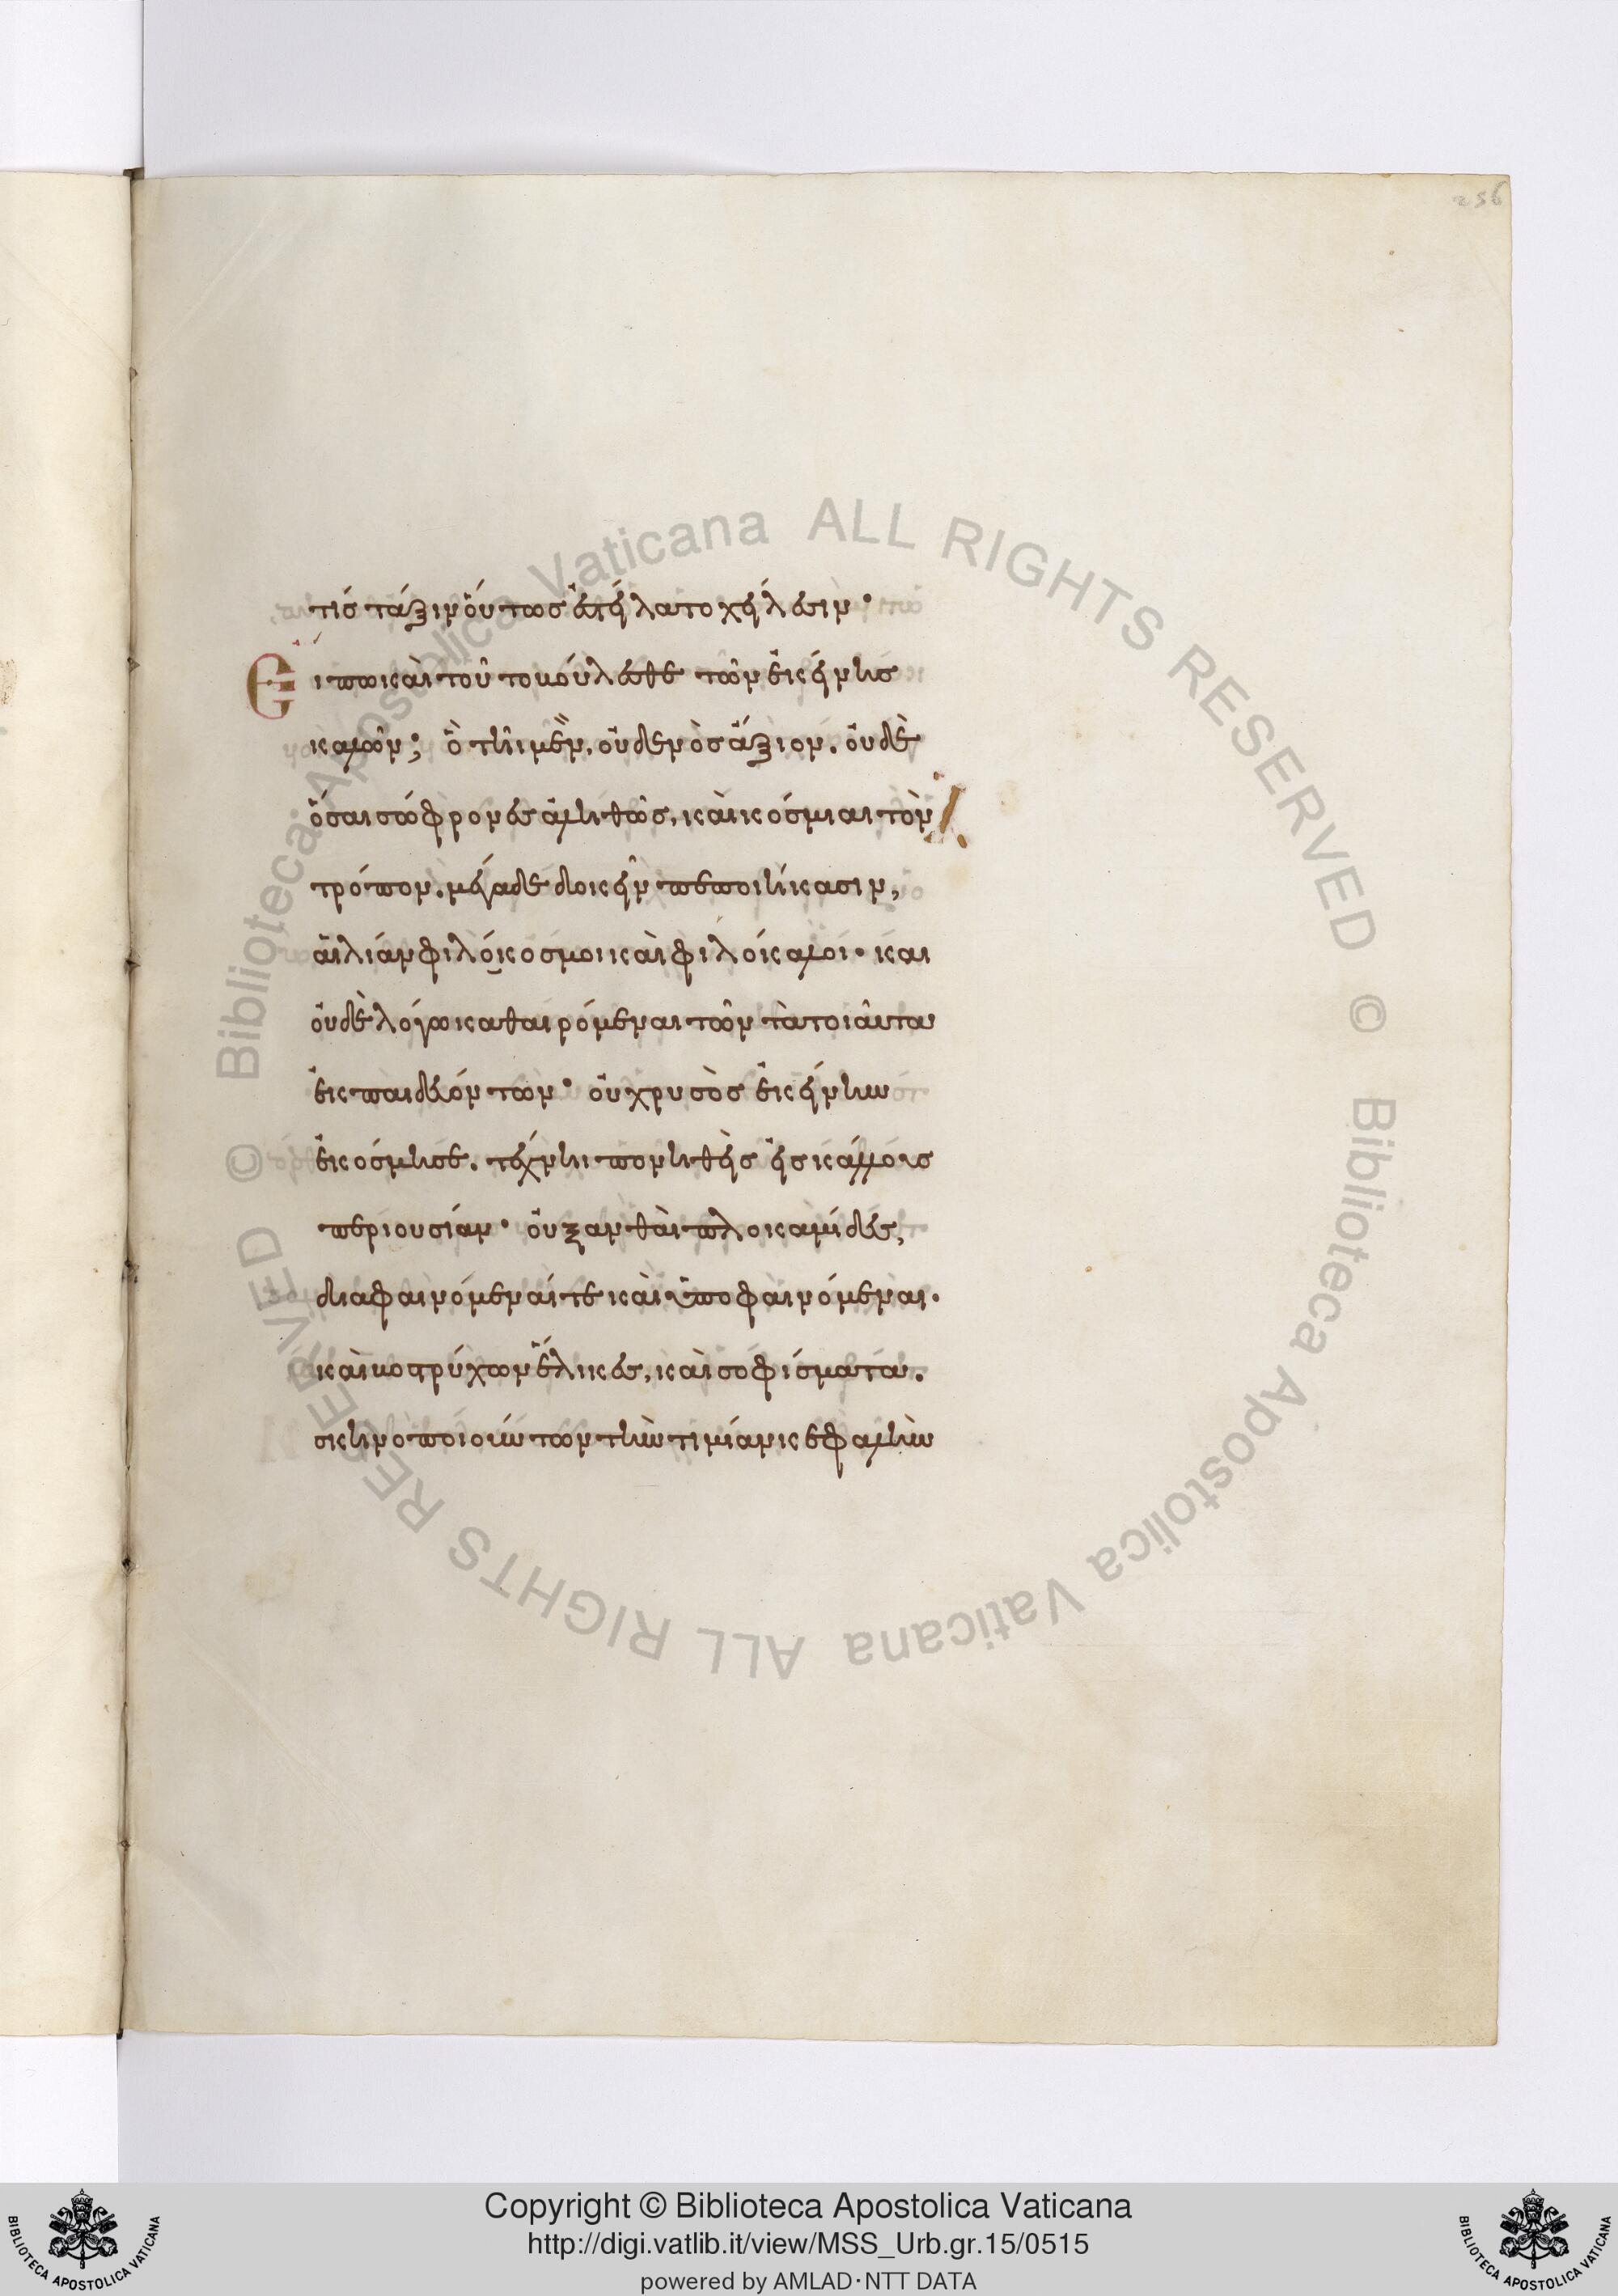 256
τισ τάξιν οὕτωσ ἐπήλατο χείλεσιν·
Εἴπω καὶ τοῦτο κούλεσθε τῶν ἐκείνησ
καλῶν; ὃ τῆι μὲν, οὐδενὸσ ἄξιον. οὐδὲ
ὅσαι σώφρονεσ ἀληθῶσ, καὶ κόσμιαι τὸν
τρόπον. μέγα δὲ δοκεῖν πεποιήκασιν,
αἱ λίαν φιλόκοσμοι καὶ φιλόκαλοι· και
οὐδὲ λόγω καθαιρόμεναι τῶν τὰ τοιαῦτα
ἐκπαιδευόντων· οὐ χρυσὸσ ἐκείνην
ἐκόσμησε. τέχνηι πονηθεὶσ εἰσ κάλλουσ
περιουσίαν· οὐ ξανθαὶ πλοκαμίδεσ,
διαφαινόμεναί τε καὶ ὑποφαινόμεναι.
καὶ βοστρύχων ἕλικεσ, καὶ σοφίσματα.
σκηνοποιούντων τὴν τιμίαν κεφαλὴν
Copyright © Biblioteca Apostolica Vaticana
http://digi.vatlib.it/view/MSS_Urb.gr.15/0515
powered by AMLAD·NTT DATA
BIBLIOTECA APOSTOLICA VATICANA
BIBLIOTECA APOSTOLICA VATICANA
© Biblioteca Apostolica Vaticana ALL RIGHTS RESERVED
© Biblioteca Apostolica Vaticana ALL RIGHTS RESERVED